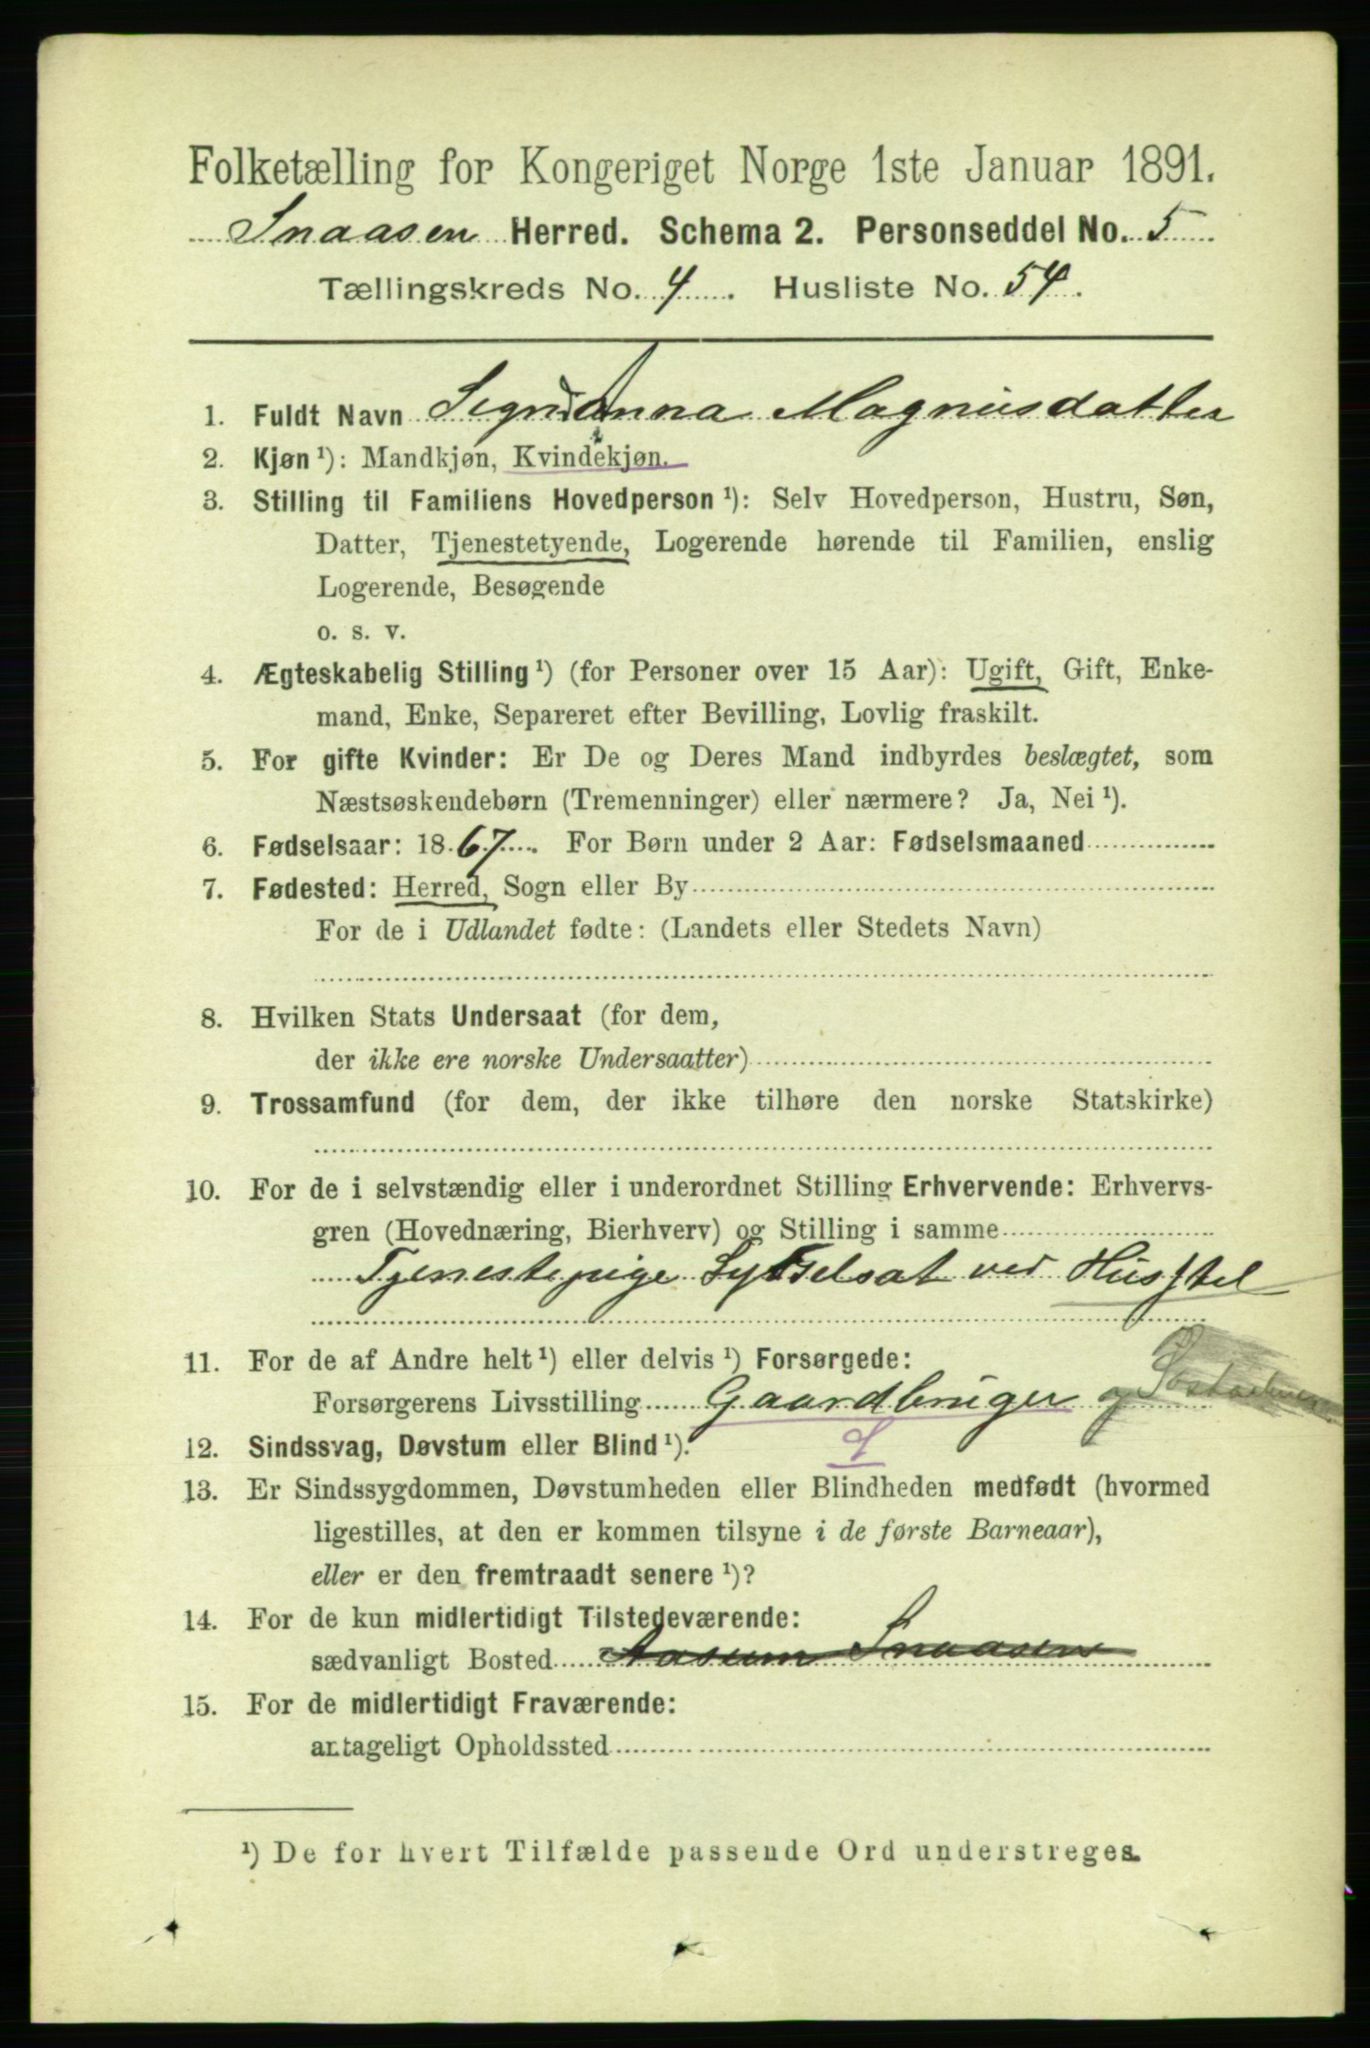 Folketælling for Kongeriget Norge 1ste Januar 1891.
Snaasen Herred. Schema 2. Personseddel No. 5
Tællingskreds No. 4. Husliste No. 54.
1. Fuldt Navn Anna Magnusdatter
2. Kjøn ¹): Mandkjøn, Kvindekjøn.
3. Stilling til Familiens Hovedperson ¹): Selv Hovedperson, Hustru, Søn,
Datter, Tjenestetyende, Logerende hørende til Familien, enslig
Logerende, Besøgende
o. s. v.
4. Ægteskabelig Stilling ¹) (for Personer over 15 Aar): Ugift, Gift, Enke-
mand, Enke, Separeret efter Bevilling, Lovlig fraskilt.
5. For gifte Kvinder: Er De og Deres Mand indbyrdes beslægtet, som
Næstsøskendebørn (Tremenninger) eller nærmere? Ja, Nei ¹).
6. Fødselsaar: 1867. For Børn under 2 Aar: Fødselsmaaned
7. Fødested: Herred, Sogn eller By
For de i Udlandet fødte: (Landets eller Stedets Navn)
8. Hvilken Stats Undersaat (for dem,
der ikke ere norske Undersaatter)
9. Trossamfund (for dem, der ikke tilhøre den norske Statskirke)
10. For de i selvstændig eller i underordnet Stilling Erhvervende: Erhvervs-
gren (Hovednæring, Bierhverv) og Stilling i samme
Tjenestepige Sysselsat ved Husstel
11. For de af Andre helt ¹) eller delvis ¹) Forsørgede:
Forsørgerens Livsstilling Gaardbruger og
12. Sindssvag, Døvstum eller Blind ¹).
13. Er Sindssygdommen, Døvstumheden eller Blindheden medfødt (hvormed
ligestilles, at den er kommen tilsyne i de første Barneaar),
eller er den fremtraadt senere ¹)?
14. For de kun midlertidigt Tilstedeværende:
sædvanligt Bosted Snaasen
15. For de midlertidigt Fraværende:
antageligt Opholdssted
¹) De for hvert Tilfælde passende Ord understreges.